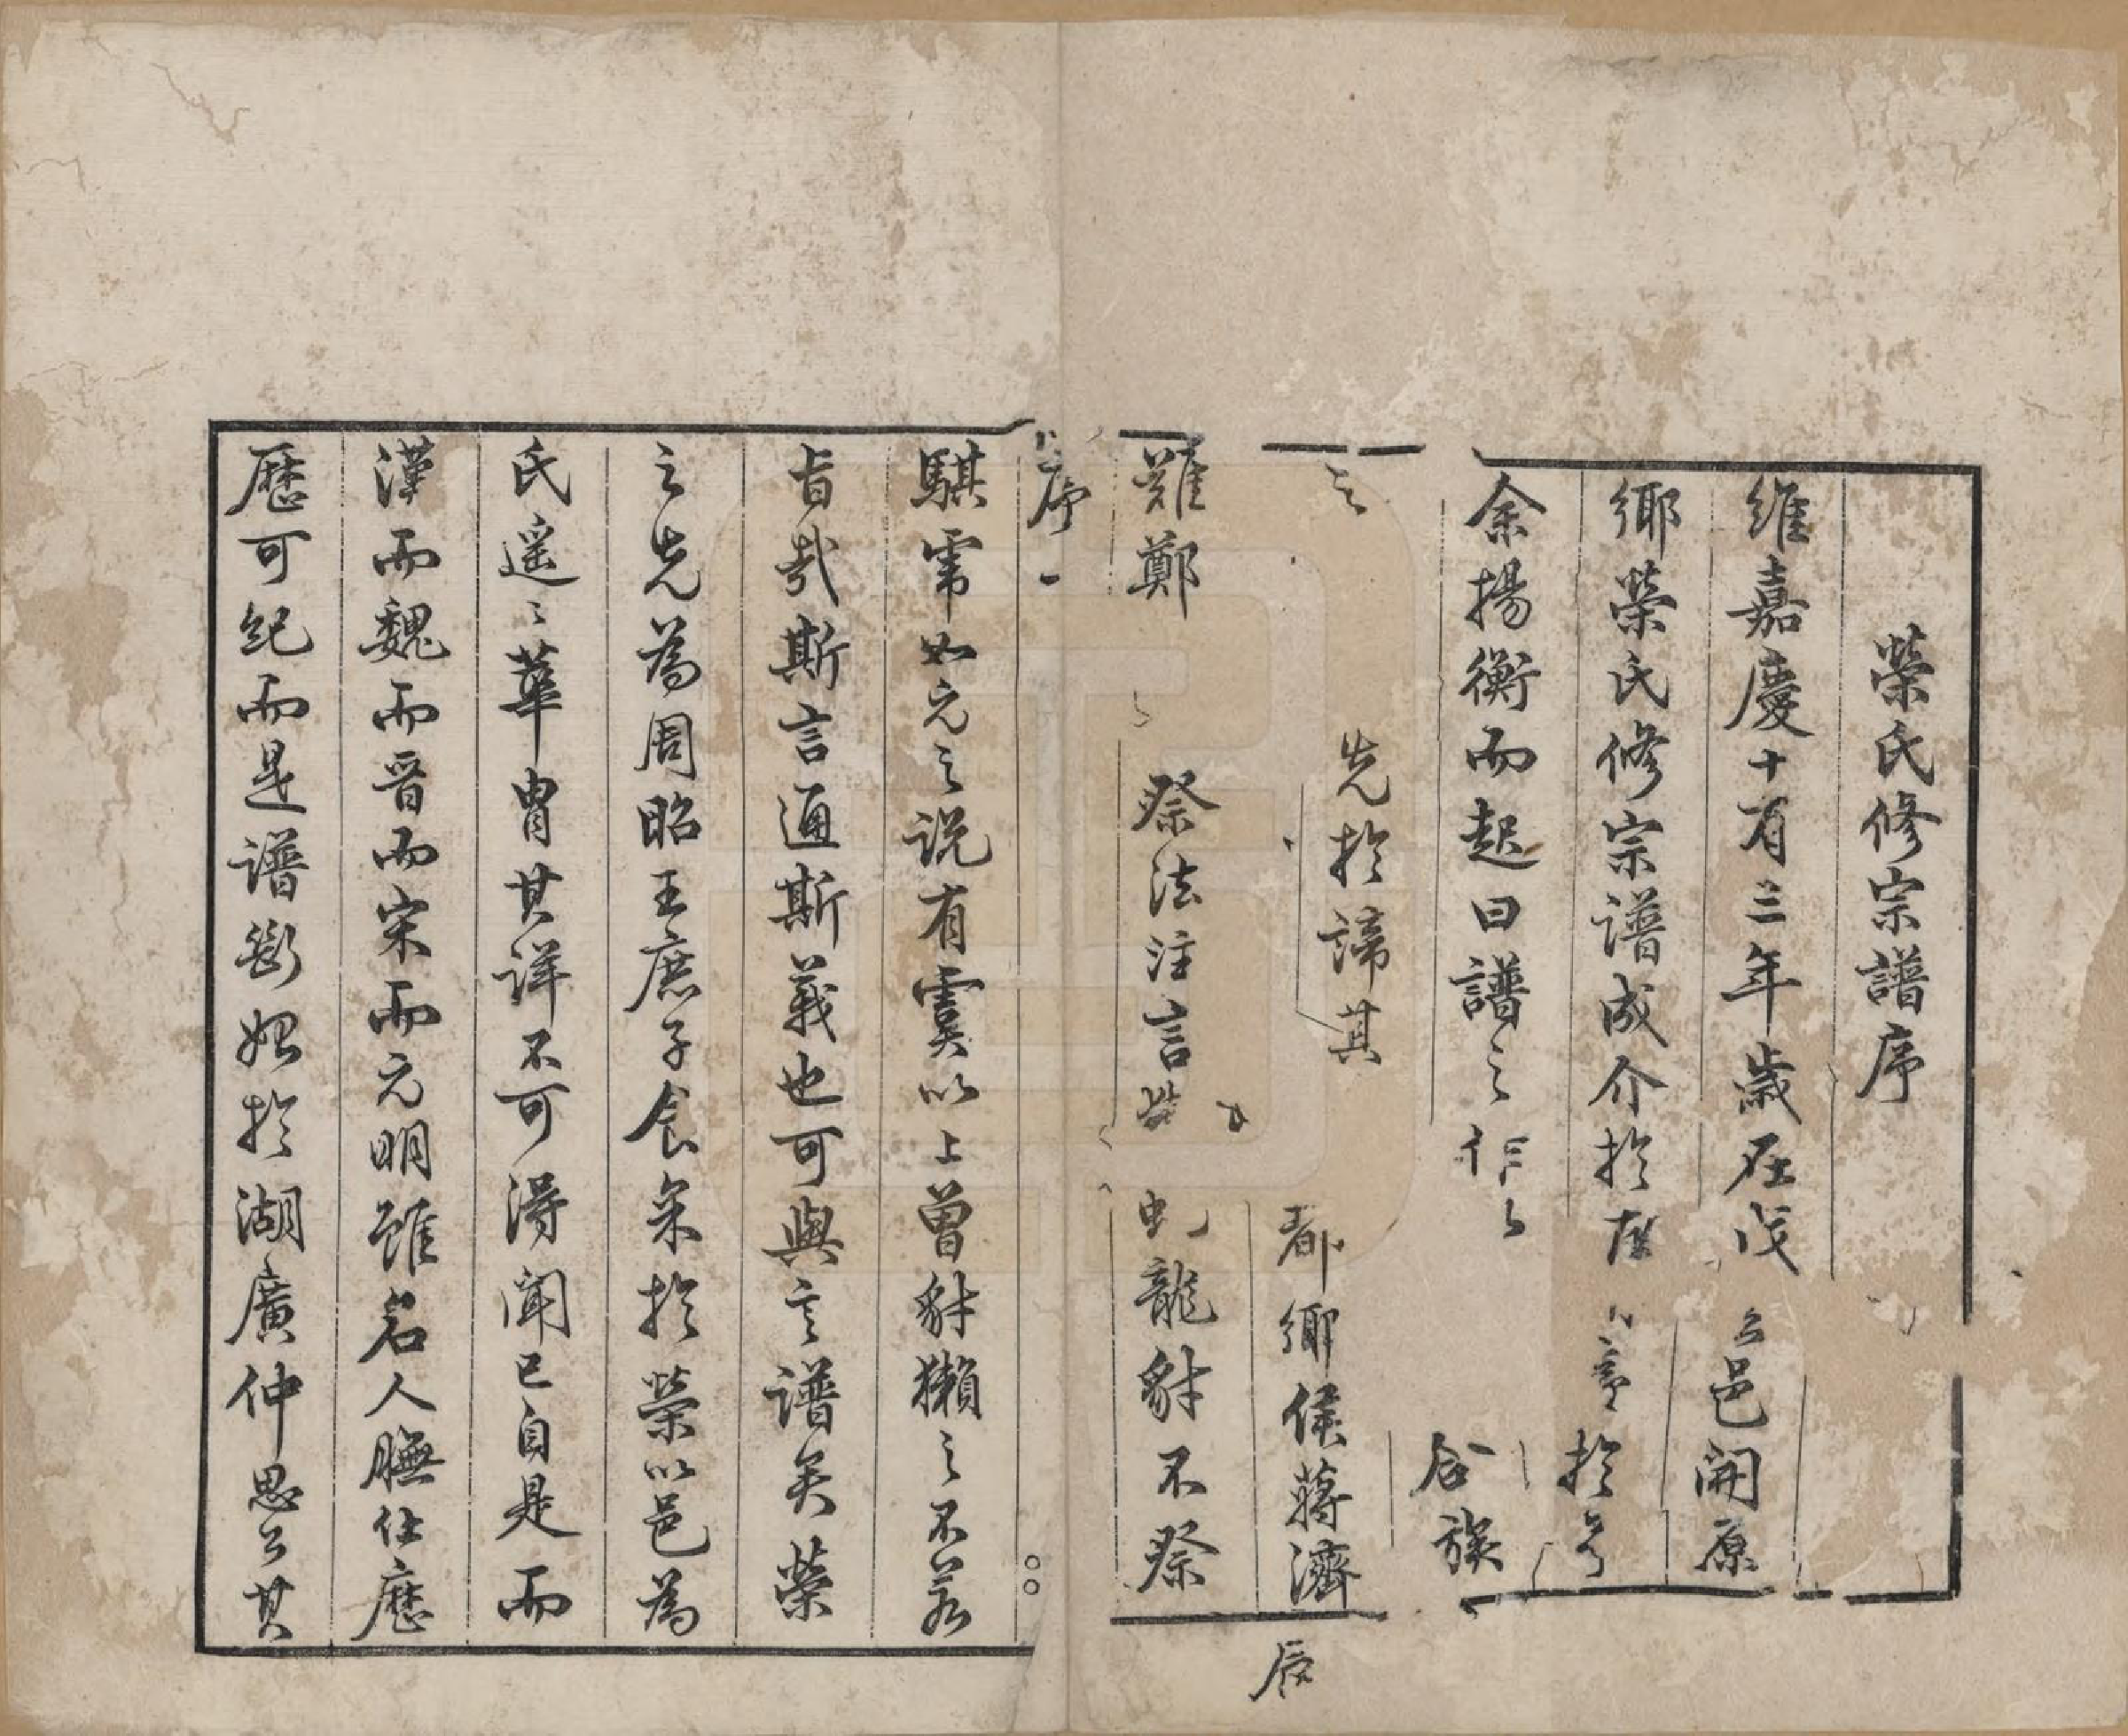 榮氏修宗譜序
維嘉慶十有三年歲在戊
邑開原
鄉榮氏修宗譜成介於
於
余揚衡而起曰譜之作
合族
先於諦其
都鄉侯蔣濟
難鄭
祭法注言
虬龍豺不祭
辰
序一
騏䨓如元之説有虞以上曾豺獺之不若
旨哉斯言通斯義也可與言譜矣榮
之先為周昭王庶子食采於榮以邑為
氏遥〻華胄其詳不可得聞已自是而
漢而魏而晉而宋而元明雖名人膴仕歷
歷可紀而是譜斷始於湖廣仲思公其